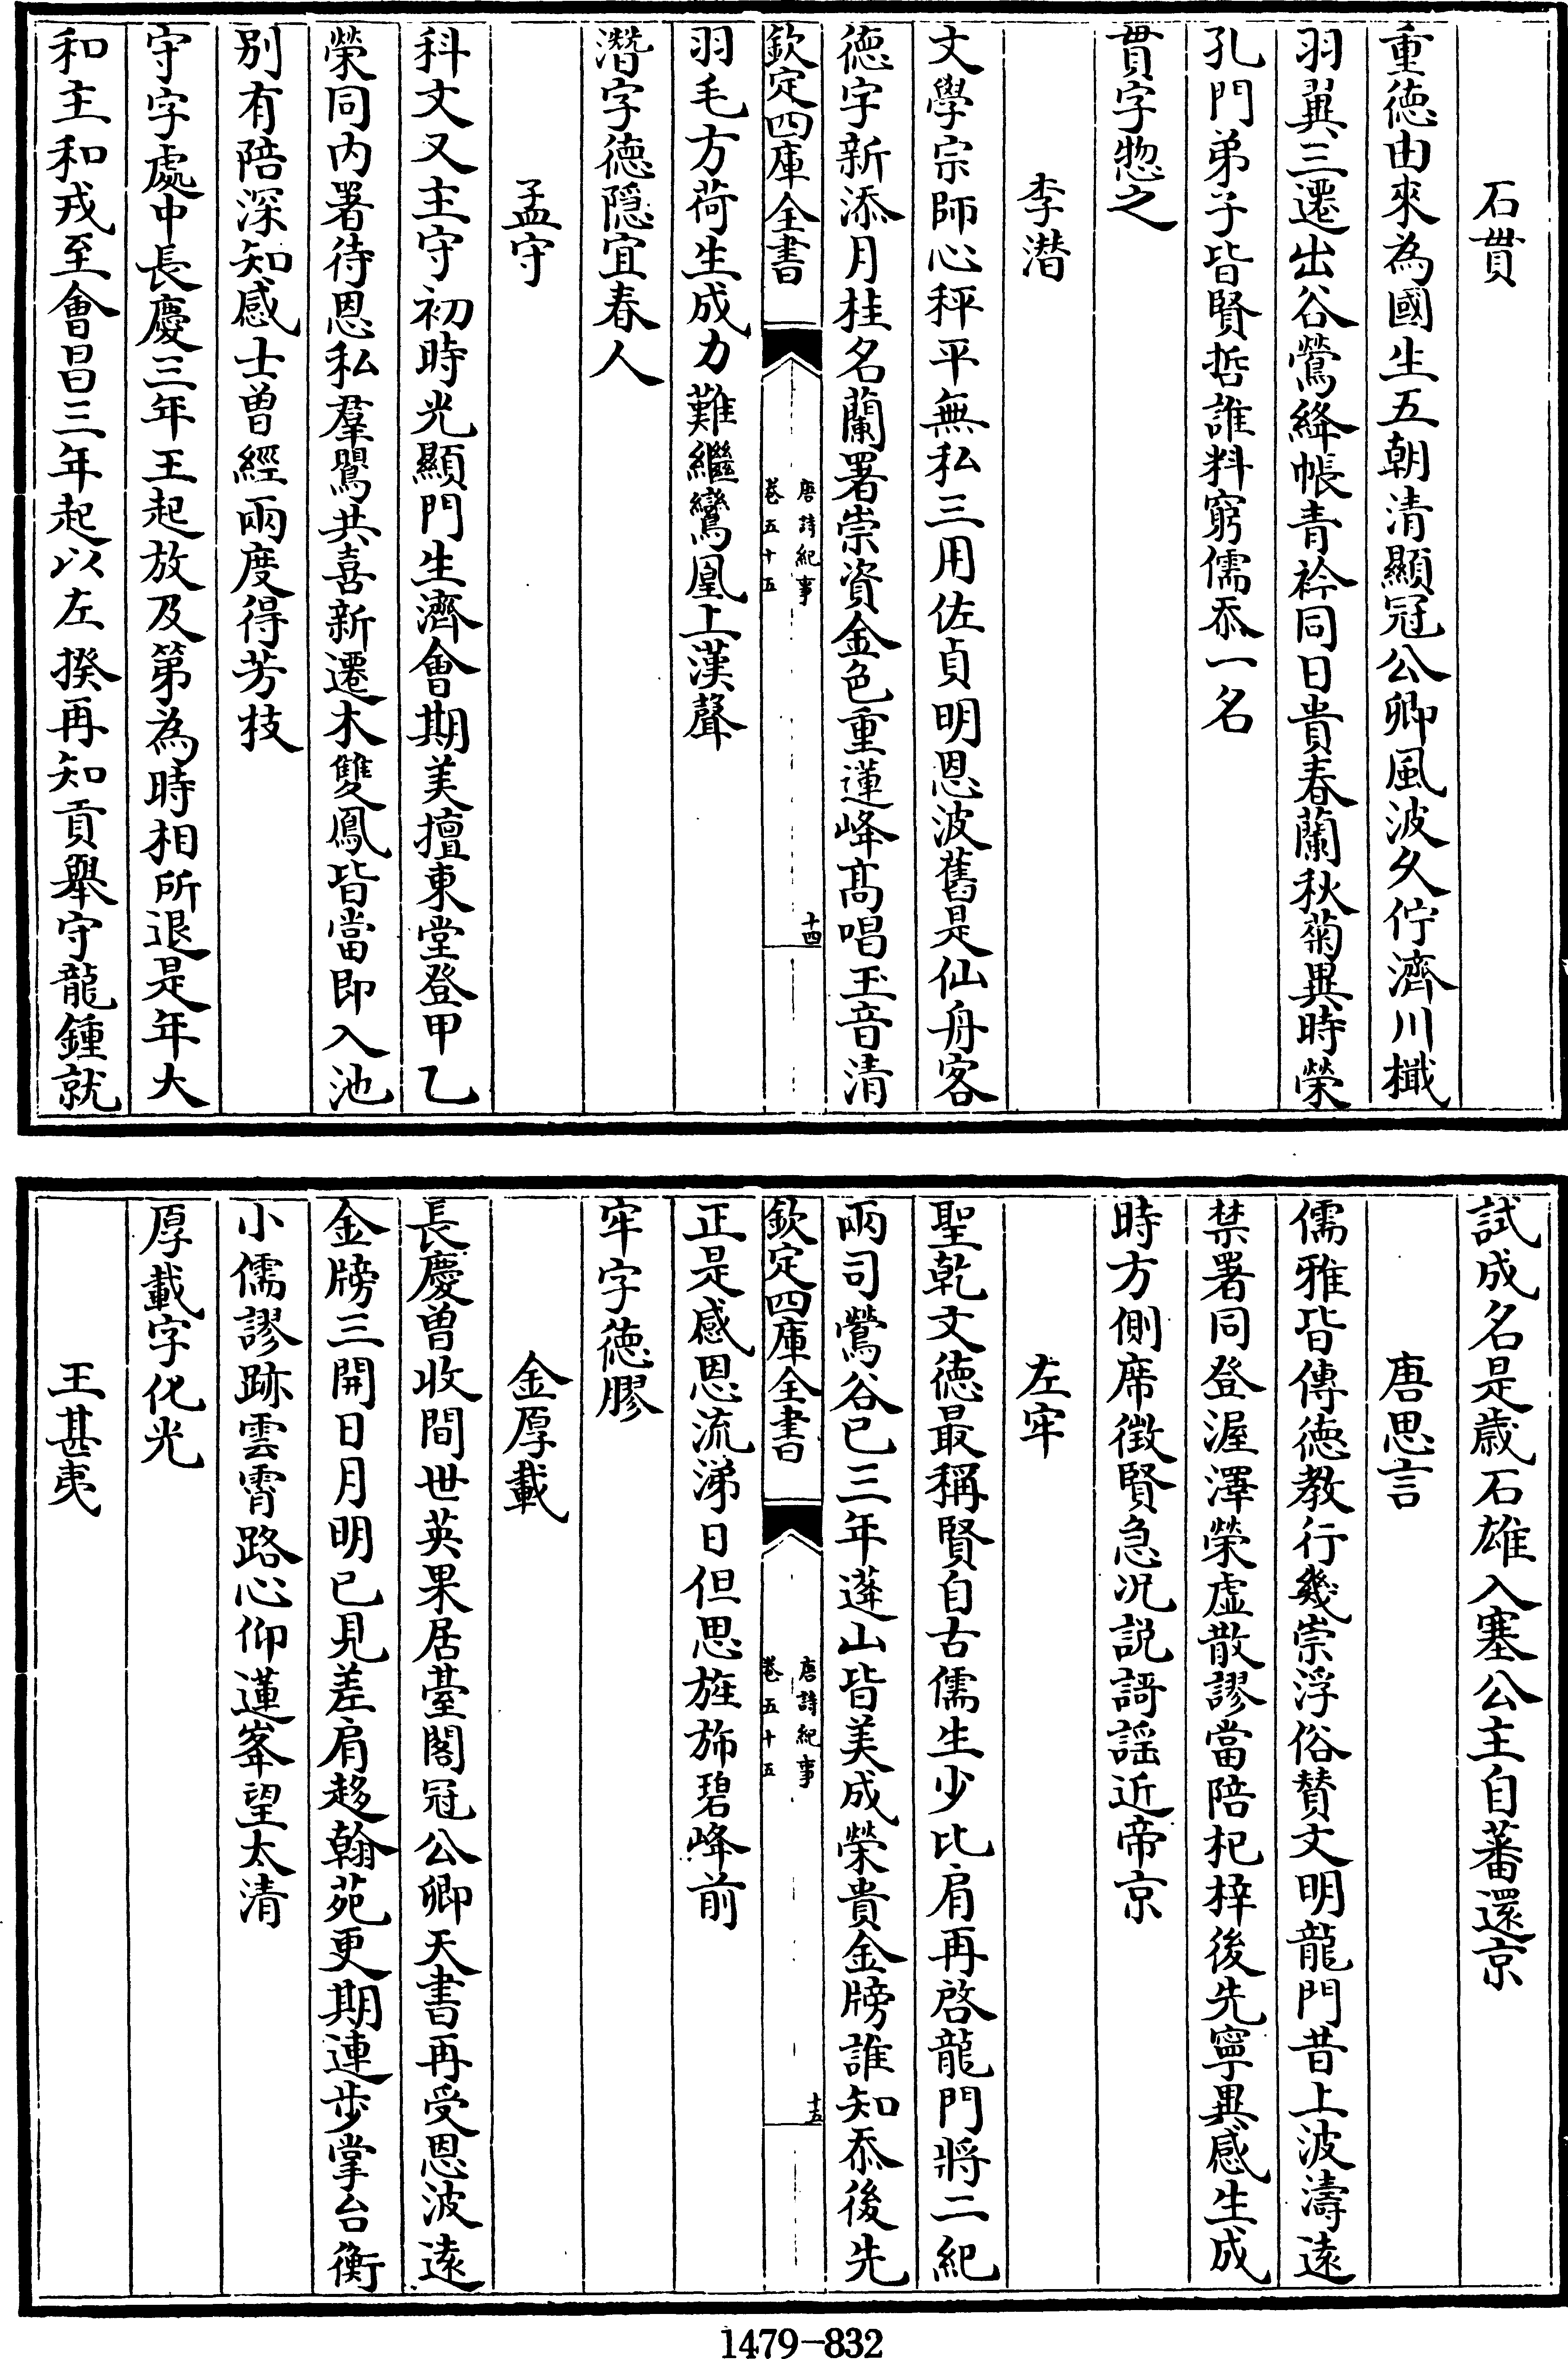 石貫
重徳由來為國生五朝清顯冠公卿風波久佇濟川檝
羽翼三遷出谷鶯絳帳青衿同日貴春蘭秋菊異時榮
孔門弟子皆賢哲誰料窮儒忝一名
貫字惣之
李潜
文學宗師心秤平無私三用佐貞明恩波舊是仙舟客
德字新添月桂名蘭署崇資金色重蓮峰髙唱玉音清
欽定四庫全書
唐詩紀事
卷五十五
十四
羽毛方荷生成力難繼鸞凰上漢聲
潛字德隠宜春人
孟守
科文又主守初時光顯門生濟會期美擅東堂登甲乙
榮同内署待恩私羣鸎共喜新遷木雙鳳皆當即入池
别有陪深知感士曾經兩度得芳技
守字處中長慶三年王起放及第為時相所退是年大
和主和戎至會昌三年起以左揆再知貢舉守龍鍾就
試成名是歲石雄入塞公主自蕃還京
唐思言
儒雅皆傳徳教行幾崇浮俗賛文明龍門昔上波濤逺
禁署同登渥澤榮虚散謬當陪杞梓後先寧異感生成
時方側席徴賢急况説謌謡近帝京
左牢
聖乾文徳最稱賢自古儒生少比肩再啓龍門將二紀
兩司鶯谷已三年蓬山皆美成榮貴金牓誰知忝後先
欽定四庫全書
唐詩紀事
卷五十五
十五
正是感恩流涕日但思旌斾碧峰前
牢字徳膠
金厚載
長慶曽收間世英果居臺閣冠公卿天書再受恩波逺
金牓三開日月明已見差肩趍翰苑更期連步掌台衡
小儒謬跡雲霄路心仰蓮峯望太清
厚載字化光
王甚夷
1479-832